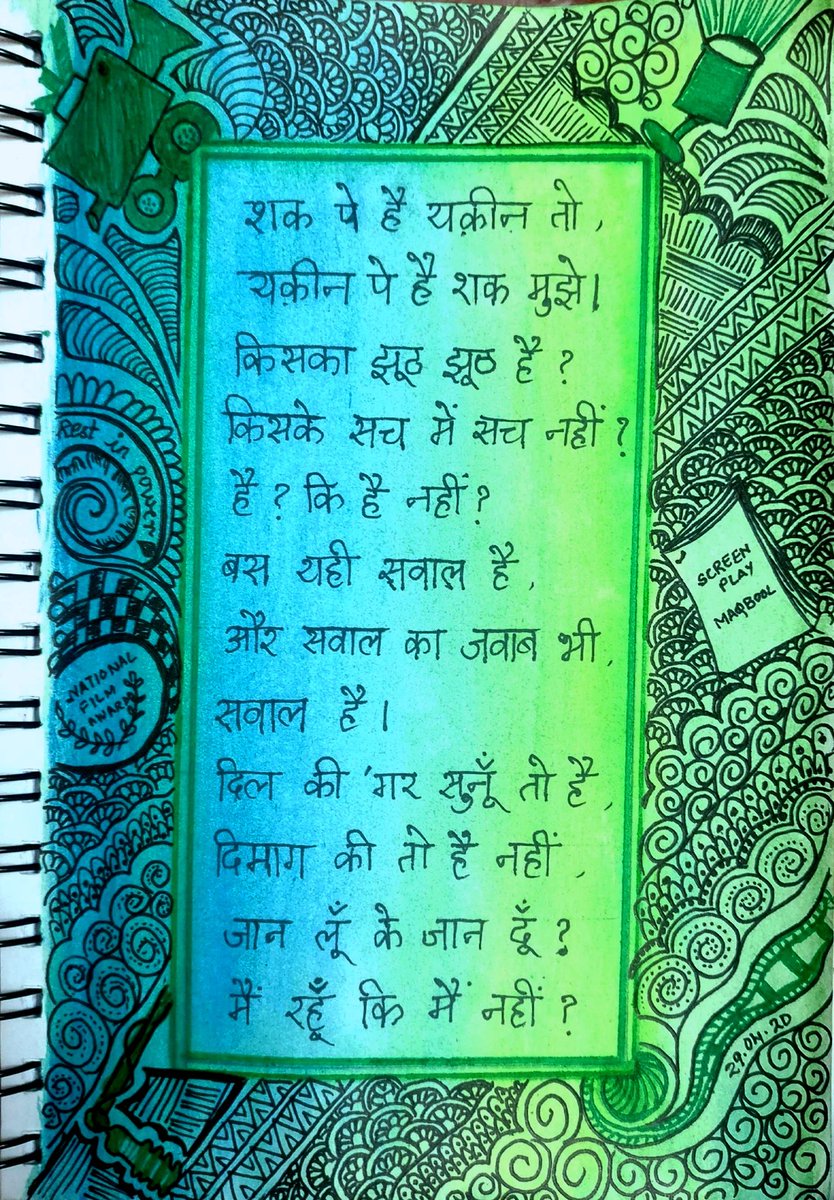 शक पे है यक़ीन तो,
यक़ीन पे है शक मुझे।
किसका झूठ झूठ है ?
किसके सच में सच नहीं ?
है ? कि है नहीं ?
बस यही सवाल है,
और सवाल का जवाब भी,
सवाल है।
दिल की 'गर सुनूँ तो है,
दिमाग की तो है नहीं,
जान लूँ के जान दूँ ?
मैं रहूँ कि मैं नहीं ?
Rest in power
NATIONAL
FILM
AWARD
SCREEN
PLAY
MAQBOOL
29.04.20